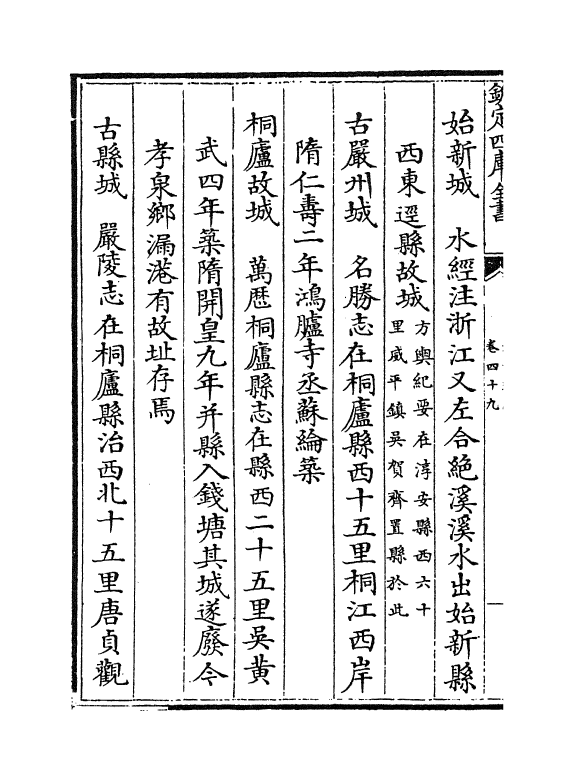 欽定四庫全書
卷四十九
始新城　水經注浙江又左合絶溪溪水出始新縣
西東逕縣故城方輿紀要在淳安縣西六十
里威平鎮吳賀齊置縣於此
古嚴州城　名勝志在桐廬縣西十五里桐江西岸
隋仁壽二年鴻臚寺丞蘇綸築
桐廬故城　萬歴桐廬縣志在縣西二十五里吳黄
武四年築隋開皇九年并縣入錢塘其城遂廢今
孝泉鄉漏港有故址存焉
古縣城　嚴陵志在桐廬縣治西北十五里唐貞觀